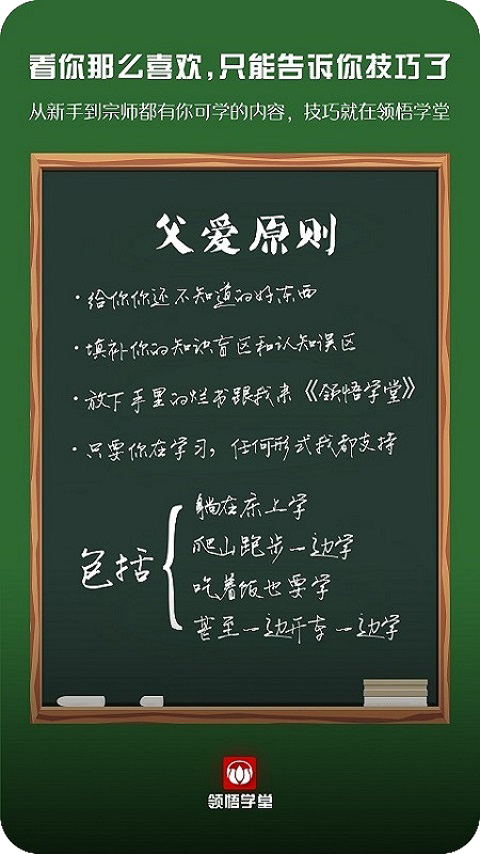 看你那么喜欢,只能告诉你技巧了
从新手到宗师都有你可学的内容，技巧就在领悟学堂
父爱原则
·给你你还不知道的好东西
·填补你的知识盲区和认知误区
·放下手里的烂书跟我来《领悟学堂》
·只要你在学习，任何形式我都支持
包括
躺在床上学
爬山跑步一边学
吃着饭也要学
甚至一边开车一边学
领悟学堂